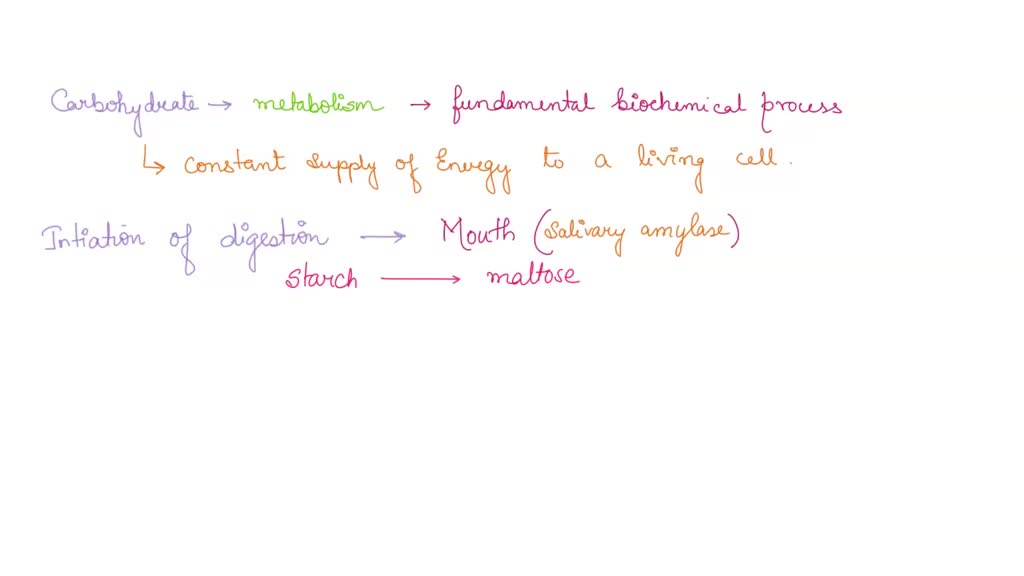 Carbohydrate → metabolism → fundamental biochemical process
↳ constant supply of Energy to a living cell.
Intiation of digestion → Mouth (Salivary amylase)
Starch → maltose